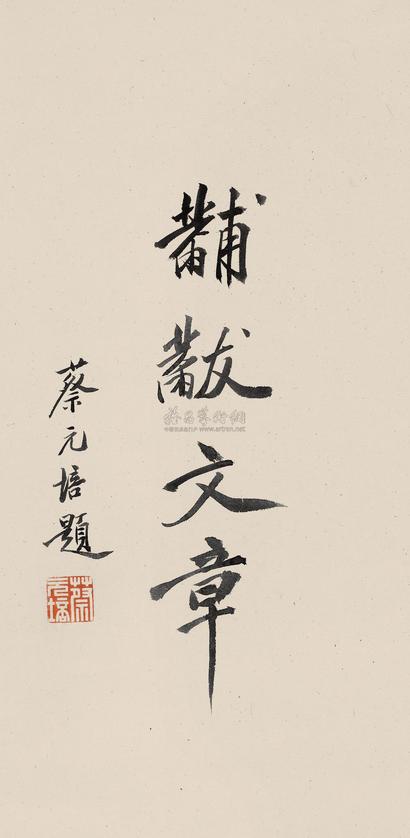 黼黻文章
蔡元培題
蔡元培
雅昌藝術網
www.artron.net